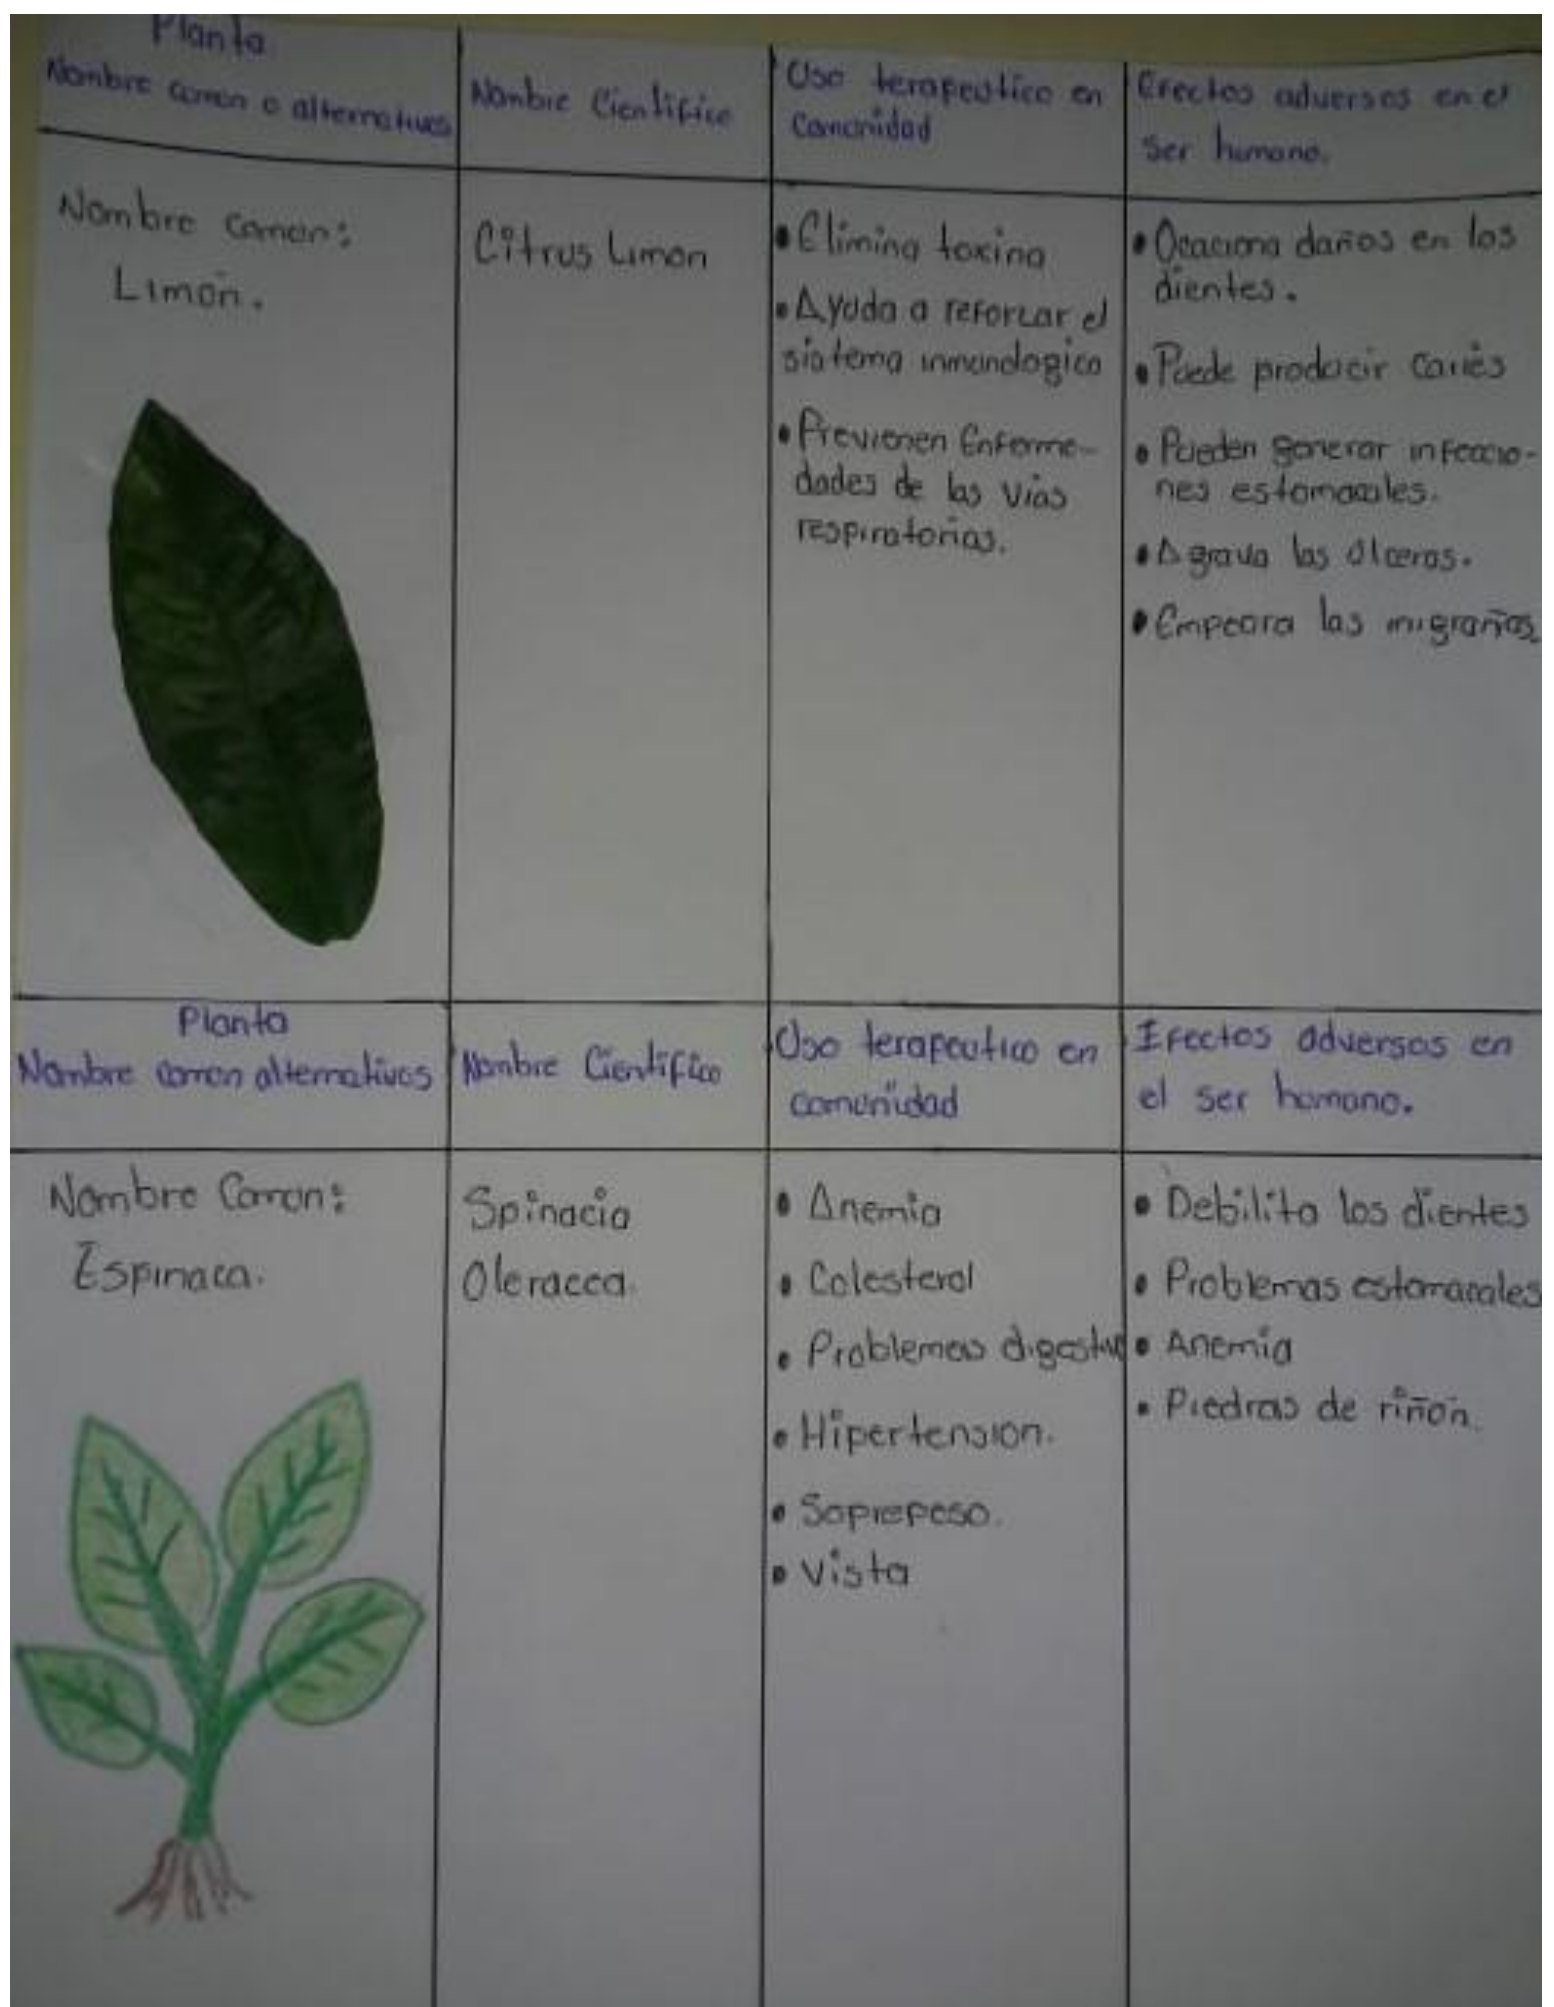 Planta
Nombre comun o alternativos
Nombre Cientifico
Uso terapeutico en
Comunidad
Efectos adversos en el
ser humano.
Nombre comun:
Limón.
Citrus Limon
• Elimina toxina
• Ayuda a reforzar el
sistema inmunologico
• Previenen Enferme-
dades de las vias
respiratorias.
• Ocaciona daños en los
dientes.
• Puede producir cariés
• Pueden generar infeccio-
nes estomacales.
• Agrava las úlceras.
• Empeora las migrañas.
Planta
Nombre comun alternativos
Nombre Cientifico
Uso terapeutico en
comunidad
Efectos adversos en
el ser humano.
Nombre Comun:
Espinaca.
Spinacia
Oleracea.
• Anemia
• Colesterol
• Problemas digestivo
• Hipertension.
• Soprepeso.
• Vista
• Debilita los dientes
• Problemas estomacales
• Anemia
• Piedras de riñón.